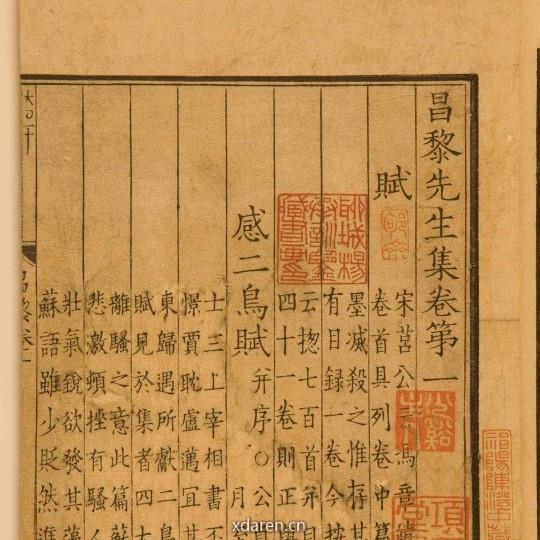 昌黎先生集卷第一
賦
宋莒公
卷首具列卷中篇
墨滅殺之惟存其
有目録一卷今按
云揔七百首并目
四十一卷則正與
感二鳥賦
并序○公貞
月
士三上宰相書不
憬賈耽盧邁宜其
東歸遇所獻二鳥
賦見於集者四大
離騷之意此篇蘇
悲激頓挫有騷人
壯氣銳欲發其藻
蘇語雖少貶然進
昌黎卷一
聊城楊
藏書
xdaren.cn